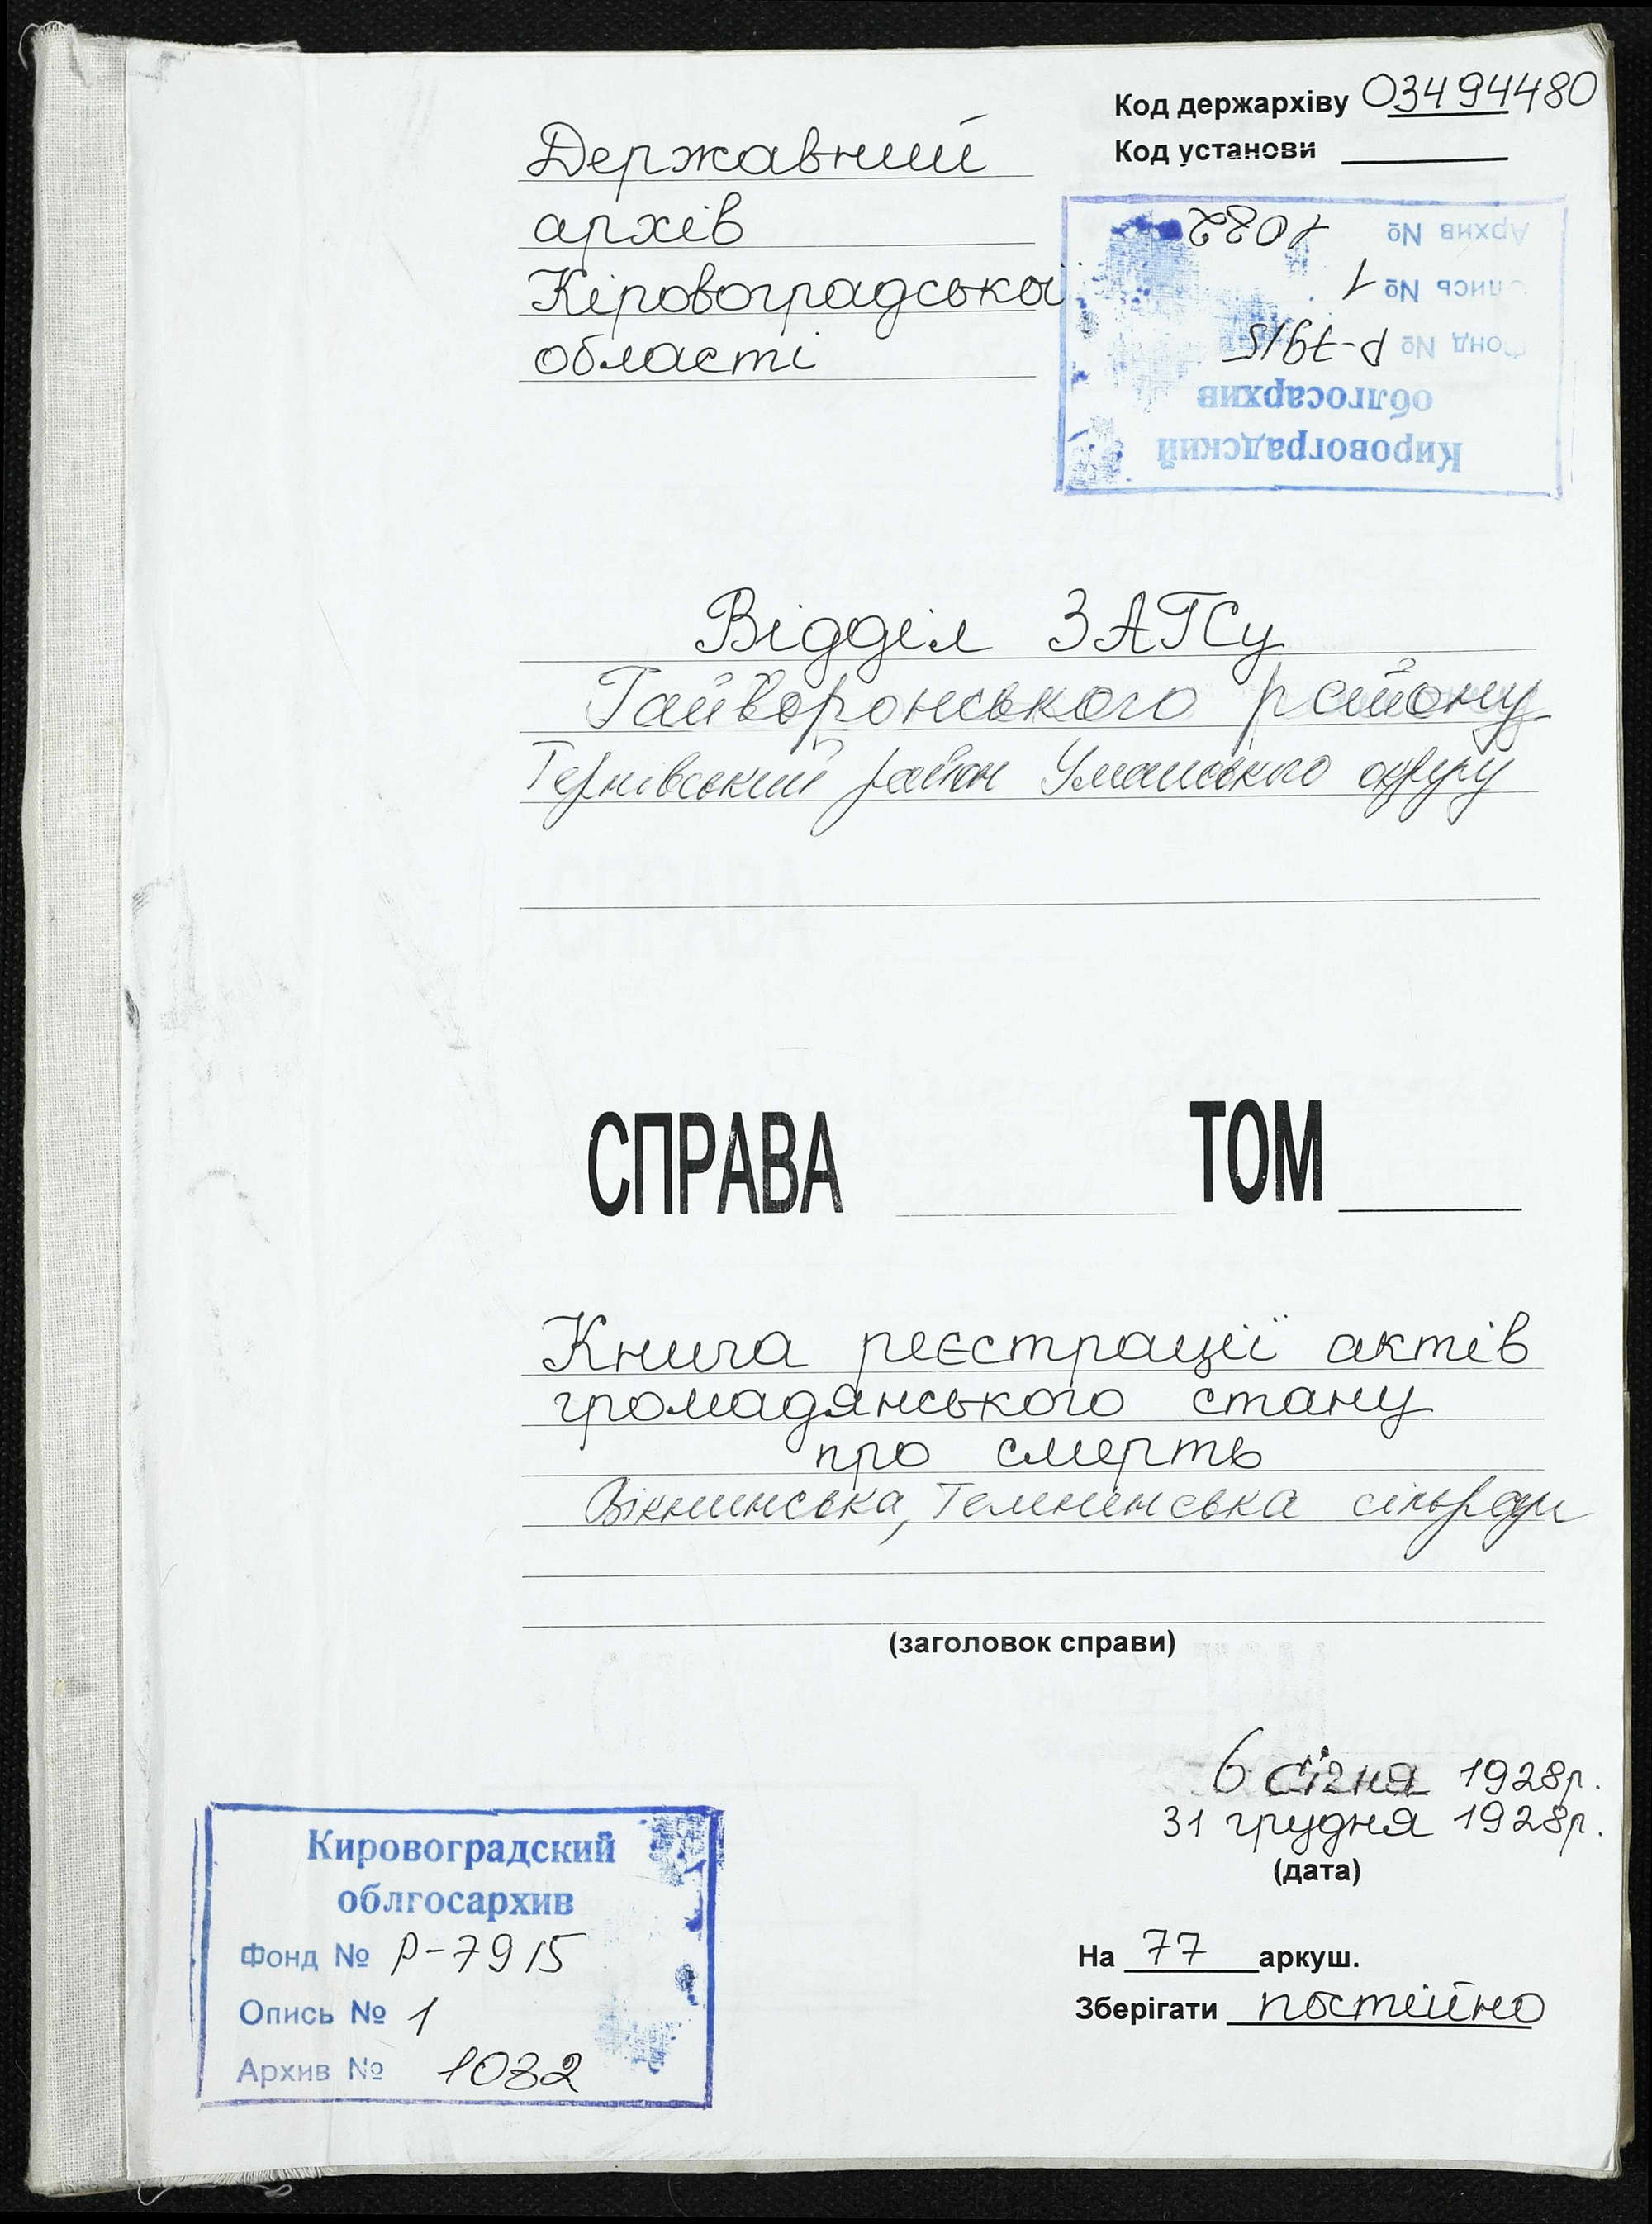 Код держархіву 03494480
Код установи
Державний
архів
Кіровоградської
області
Кировоградский
облгосархив
Фонд № Р-7915
Опись № 1
Архив № 1082
Відділ ЗАГСу
Гайворонського району
Тернівський район Уманського округу
СПРАВА ТОМ
Книга реєстрації актів
громадянського стану
про смерть
Вікнинська, Темненська сільради
(заголовок справи)
6 січня 1928р.
31 грудня 1928р.
(дата)
На 77 аркуш.
Зберігати постійно
Кировоградский
облгосархив
Фонд № Р-7915
Опись № 1
Архив № 1082